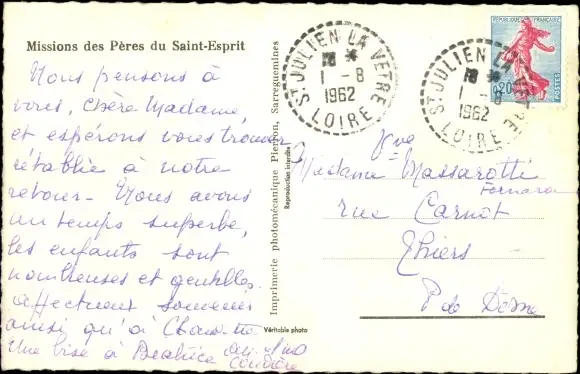 Missions des Pères du Saint-Esprit
Nous pensons à
vous, chère Madame,
et espérons vous trouver
rétablie à notre
retour - Nous avons
un temps superbe,
les enfants sont
nombreuses et gentilles.
affectueux souvenir
ainsi qu'à
Une bise à Béatrice
Véritable photo
Imprimerie photomécanique Pierron, Sarreguemines
Reproduction interdite
ST JULIEN LA VETRE
18 *
1 -8
1962
LOIRE
ST JULIEN LA VETRE
18 *
1 -8
1962
LOIRE
REPUBLIQUE FRANÇAISE
0,20
POSTES
Vve
Madame Massarotti
Fornara
rue Carnot
Thiers
P de Dôme